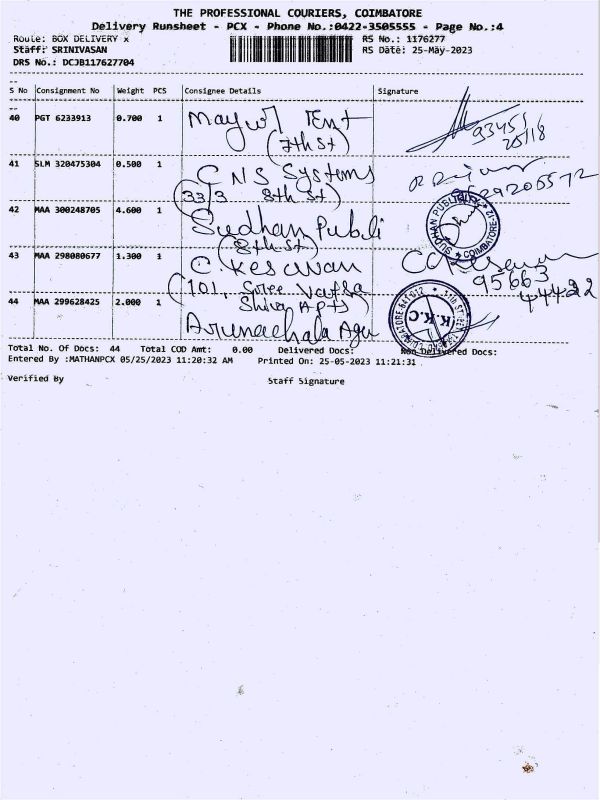 THE PROFESSIONAL COURIERS, COIMBATORE
Delivery Runsheet - PCX - Phone No.:0422-3505555 - Page No.:4
Route: BOX DELIVERY x RS No.: 1176277
Staff: SRINIVASAN RS Date: 25-May-2023
DRS No.: DCJB117627704
S No Consignment No Weight PCS Consignee Details Signature
40 PGT 6233913 0.700 1 Mayur Tent
(7th St)
93451
41 SLM 320475304 0.500 1 C N S Systems
(33/3 8th St)
42 MAA 300248705 4.600 1 Sudhan Publi
(8th St)
SUDHAN PUBLI COIMBATORE-12
43 MAA 298080677 1.300 1 C. Keswan
(101, Sree Vatsa
Shiva Apts)
95663
44422
44 MAA 299628425 2.000 1 Arunachala Agu
K.K.C
Total No. Of Docs: 44 Total COD Amt: 0.00 Delivered Docs: Non Delivered Docs:
Entered By :MATHANPCX 05/25/2023 11:20:32 AM Printed On: 25-05-2023 11:21:31
Verified By Staff Signature